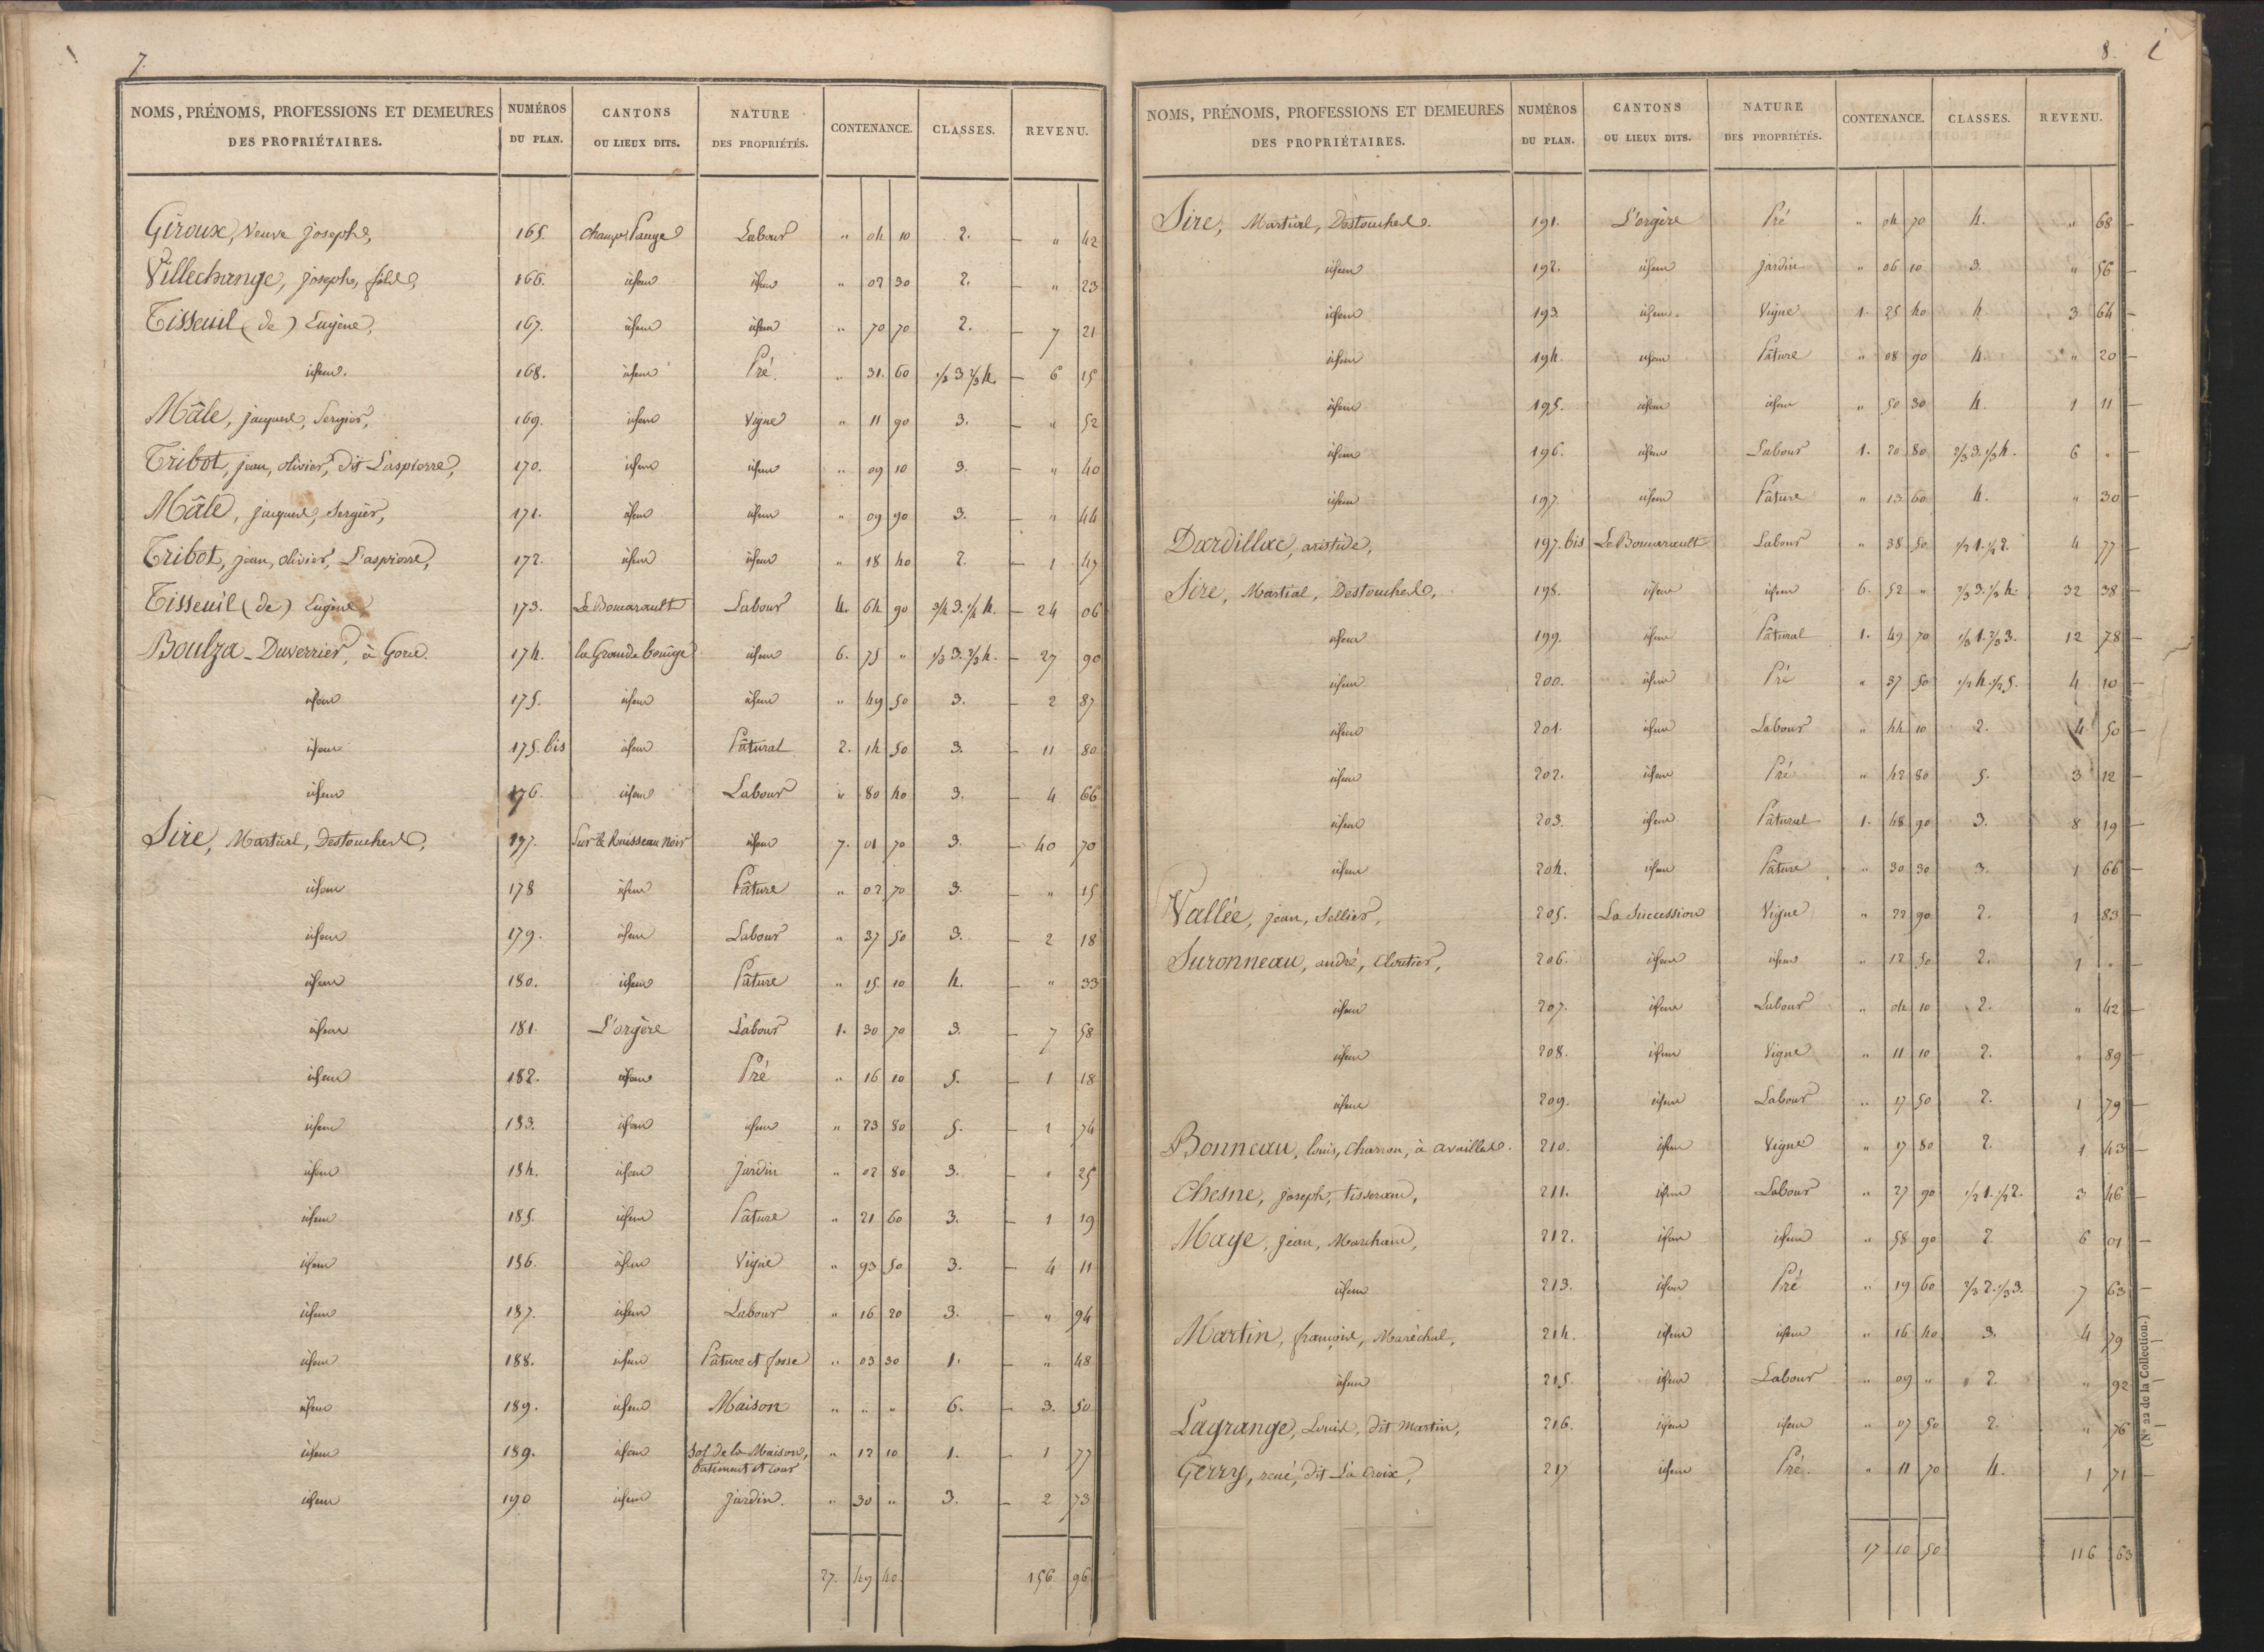 7.
NOMS, PRÉNOMS, PROFESSIONS ET DEMEURES DES PROPRIÉTAIRES. | NUMÉROS DU PLAN. | CANTONS OU LIEUX DITS. | NATURE DES PROPRIÉTÉS. | CONTENANCE. | CLASSES. | REVENU.
Giroux, Veuve joseph, 165. Labour " 04 10 2. — " 42
Villechange, joseph, 166. idem idem " 02 30 2. — " 23
Tisseuil (de) Eugène, 167. idem idem " 70 70 2. — 7 21
idem. 168. idem Pré. " 31. 60 1/3 3 2/3 4. — 6 15
Mâle, jacques, Sergier, 169. idem Vigne " 11 90 3. — " 52
Tribot, jean, olivier, dit Laspierre, 170. idem idem " 09 10 3. — " 40
Mâle, jacques, Sergier, 171. idem idem " 09 90 3. — " 44
Tribot, jean, olivier, Laspierre, 172. idem idem " 18 40 2. — 1 47
Tisseuil (de) Eugène 173. Le Bomarault Labour 4. 64 90 3/4 3. 1/4 4. — 24 06
Boulza-Duverrier, à Gorre. 174. la Grande bouige idem 6. 75 " 1/3 3. 2/3 4. — 27 90
idem 175. idem idem " 49 50 3. — 2 87
idem 175. bis idem Pâtural 2. 14 50 3. — 11 80
idem 176. idem Labour " 80 40 3. — 4 66
Sire, Martial, Destouches, 177. Sur le Ruisseau Noir idem 7. 01 70 3. — 40 70
idem 178 idem Pâture " 02 70 3. — " 15
idem 179. idem Labour " 37 50 3. — 2 18
idem 180. idem Pâture " 15 10 4. — " 33
idem 181. L'orgère Labour 1. 30 70 3. — 7 58
idem 182. idem Pré " 16 10 5. — 1 18
idem 183. idem idem " 23 80 5. — 1 74
idem 184. idem Jardin " 02 80 3. — " 25
idem 185. idem Pâture " 21 60 3. — 1 19
idem 186. idem Vigne " 93 50 3. — 4 11
idem 187. idem Labour " 16 20 3. — " 94
idem 188. idem Pâture et fosse " 03 30 1. — " 48
idem 189. idem Maison " " " 6. — 3. 50
idem 189. idem Sol de la Maison, " 12 10 1. — 1 77
batiment et cour
idem 190 idem Jardin. " 30 " 3. — 2 73
27. 49 40. 156 96
8.
NOMS, PRÉNOMS, PROFESSIONS ET DEMEURES DES PROPRIÉTAIRES. | NUMÉROS DU PLAN. | CANTONS OU LIEUX DITS. | NATURE DES PROPRIÉTÉS. | CONTENANCE. | CLASSES. | REVENU.
Sire, Martial, Destouches. 191. L'orgère Pré " 04 70 4. " 68 —
idem 192. idem Jardin " 06 10 3. " 56 —
idem 193. idem. Vigne 1. 25 40 4 3 64 —
idem 194. idem Pâture " 08 90 4. " 20 —
idem 195. idem idem " 50 30 4. 1 11 —
idem 196. idem Labour 1. 20 80 2/3 3. 1/3 4. 6 " —
idem 197. idem Pâture " 13 60 4. " 30 —
Dardillac, aristide, 197. bis Le Bomarault Labour " 38 50 1/2 1. 1/2 2. 4 77 —
Sire, Martial, Destouches, 198. idem idem 6. 52 " 2/3 3. 1/3 4. 32 38 —
idem 199. idem Pâtural 1. 49 70 1/3 1. 2/3 3. 12 78 —
idem 200. idem Pré " 37 50 1/2 4. 1/2 5. 4 10 —
idem 201. idem Labour " 44 10 2. 4 50 —
idem 202. idem Pré " 42 80 5. 3 12 —
idem 203. idem Pâtural 1. 48 90 3. 8 19 —
idem 204. idem Pâture " 30 30 3. 1 66 —
Vallée, jean, Sellier, 205. La Succession Vigne " 22 90 2. 1 83 —
Suronneau, andré, Cloutier, 206. idem idem " 12 50 2. 1 " —
idem 207. idem Labour " 04 10 2. " 42 —
idem 208. idem Vigne " 11 10 2. " 89 —
idem 209. idem Labour " 17 50 2. 1 79 —
Bonneau, louis, Charron, à availles. 210. idem Vigne " 17 80 2. 1 43 —
Chesne, joseph, tisserand, 211. idem Labour " 27 90 1/2 1. 1/2 2. 3 46 —
Maye, jean, Marchand, 212. idem idem " 58 90 2 6 01 —
idem 213. idem Pré " 19 60 2/3 2. 1/3 3. 7 63 —
Martin, françois, Maréchal, 214. idem idem " 16 40 3. 4 79 —
idem 215. idem Labour " 09 " 2. " 92 —
Lagrange, Louis, dit Martin, 216. idem idem " 07 50 2. " 76
Gerry, rené, dit La Croix, 217 idem Pré. " 11 70 4. 1 71 —
17 10 50 116 63
(N° 22 de la Collection.)